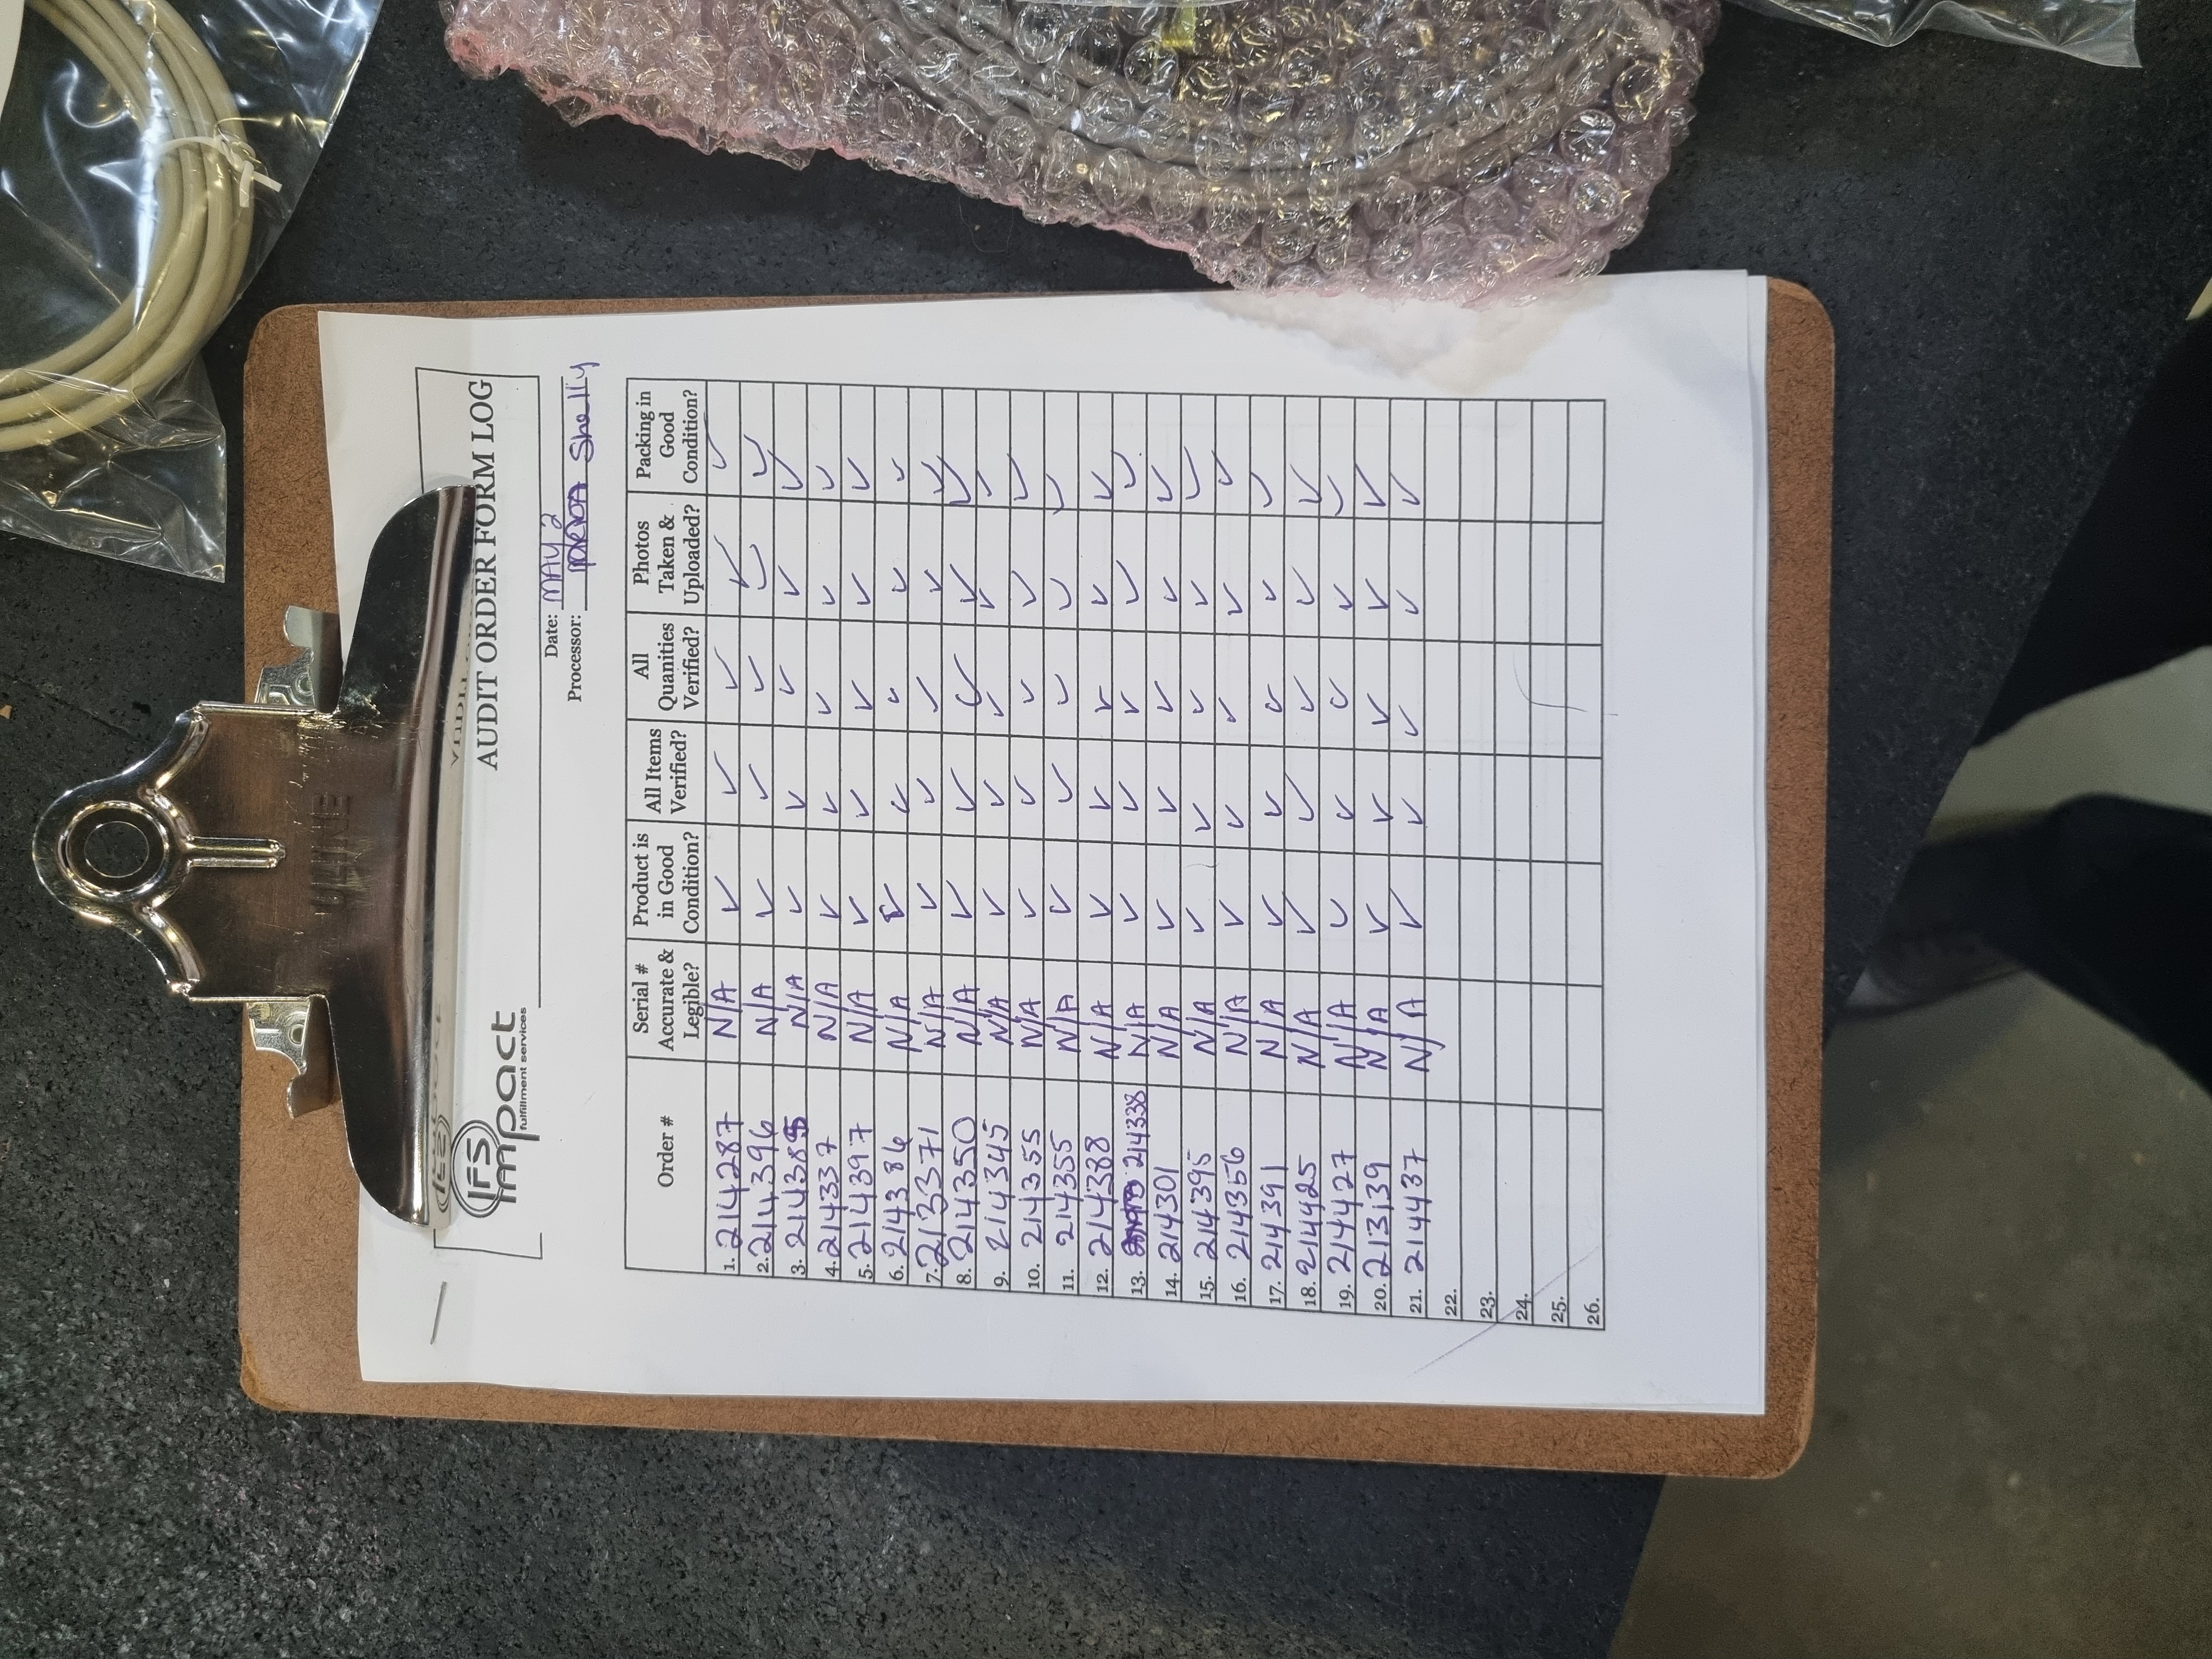 ULINE
IFS
impact
fulfillment services
AUDIT ORDER FORM LOG
Date: MAY 2
Processor: Shelly
Order # Serial # Accurate & Legible? Product is in Good Condition? All Items Verified? All Quanities Verified? Photos Taken & Uploaded? Packing in Good Condition?
1. 214287 N/A ✓ ✓ ✓ ✓ ✓
2. 214396 N/A ✓ ✓ ✓ ✓ ✓
3. 214385 N/A ✓ ✓ ✓ ✓ ✓
4. 214337 N/A ✓ ✓ ✓ ✓ ✓
5. 214397 N/A ✓ ✓ ✓ ✓ ✓
6. 214386 N/A ✓ ✓ ✓ ✓ ✓
7. 213371 N/A ✓ ✓ ✓ ✓ ✓
8. 214350 N/A ✓ ✓ ✓ ✓ ✓
9. 214345 N/A ✓ ✓ ✓ ✓ ✓
10. 214355 N/A ✓ ✓ ✓ ✓ ✓
11. 214355 N/A ✓ ✓ ✓ ✓ ✓
12. 214388 N/A ✓ ✓ ✓ ✓ ✓
13. 214338 N/A ✓ ✓ ✓ ✓ ✓
14. 214301 N/A ✓ ✓ ✓ ✓ ✓
15. 214395 N/A ✓ ✓ ✓ ✓ ✓
16. 214356 N/A ✓ ✓ ✓ ✓ ✓
17. 214391 N/A ✓ ✓ ✓ ✓ ✓
18. 214425 N/A ✓ ✓ ✓ ✓ ✓
19. 214427 N/A ✓ ✓ ✓ ✓ ✓
20. 213139 N/A ✓ ✓ ✓ ✓ ✓
21. 214437 N/A ✓ ✓ ✓ ✓ ✓
22.
23.
24.
25.
26.